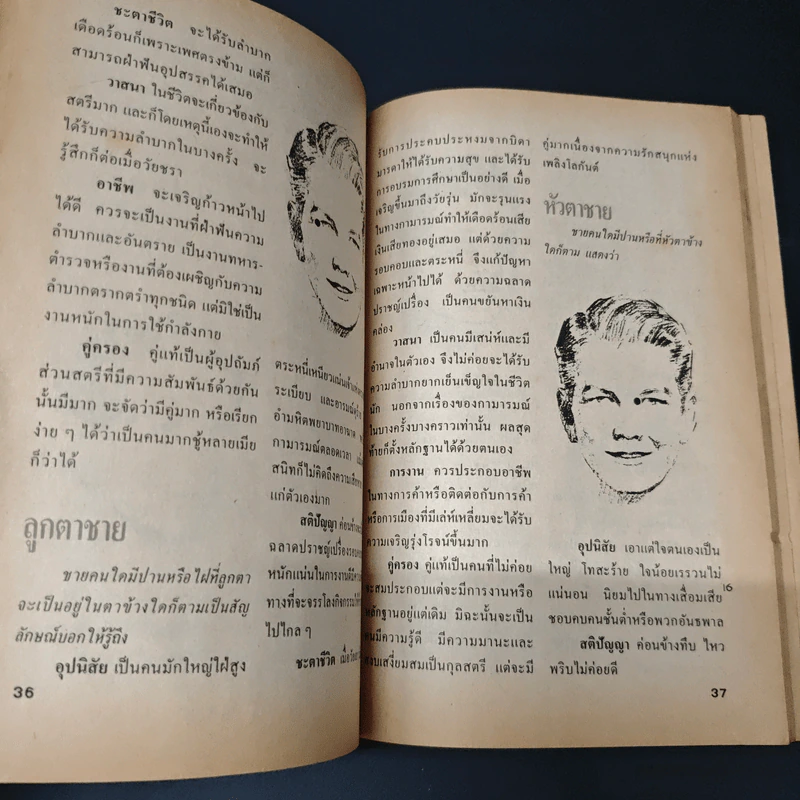 ชะตาชีวิต จะได้รับลำบาก
เดือดร้อนก็เพราะเพศตรงข้าม แต่ก็
สามารถฝ่าฟันอุปสรรคได้เสมอ
วาสนา ในชีวิตจะเกี่ยวข้องกับ
สตรีมาก และก็โดยเหตุนี้เองจะทำให้
ได้รับความลำบากในบางครั้ง จะ
รู้สึกก็ต่อเมื่อวัยชรา
อาชีพ จะเจริญก้าวหน้าไป
ได้ดี ควรจะเป็นงานที่ฝ่าฟันความ
ลำบากและอันตราย เป็นงานทหาร-
ตำรวจหรืองานที่ต้องเผชิญกับความ
ลำบากตรากตรำทุกชนิด แต่มิใช่เป็น
งานหนักในการใช้กำลังกาย
คู่ครอง คู่แท้เป็นผู้อุปถัมภ์
ส่วนสตรีที่มีความสัมพันธ์ด้วยกัน
นั้นมีมาก จะจัดว่ามีคู่มาก หรือเรียก
ง่าย ๆ ได้ว่าเป็นคนมากชู้หลายเมีย
ก็ว่าได้
ลูกตาชาย
ชายคนใดมีปานหรือไฝที่ลูกตา
จะเป็นอยู่ในตาข้างใดก็ตามเป็นสัญ
ลักษณ์บอกให้รู้ถึง
อุปนิสัย เป็นคนมักใหญ่ใฝ่สูง
36
ตระหนี่เหนียวแน่น
ระเบียบ และอารมณ์
อำมหิตพยาบาทอาฆาต
กามารมณ์ตลอดเวลา
สนิทก็ไม่คิดถึงความ
แก่ตัวเองมาก
สติปัญญา ค่อนข้าง
ฉลาดปราชญ์เปรื่อง
หนักแน่นในการงาน
ทางที่จะจรรโลงกิจกรรม
ไปไกล ๆ
ชะตาชีวิต เมื่อ
รับการประคบประหงมจากบิดา
มารดาให้ได้รับความสุข และได้รับ
การอบรมการศึกษาเป็นอย่างดี เมื่อ
เจริญขึ้นมาถึงวัยรุ่น มักจะรุนแรง
ในทางกามารมณ์ทำให้เดือดร้อนเสีย
เงินเสียทองอยู่เสมอ แต่ด้วยความ
รอบคอบและตระหนี่ จึงแก้ปัญหา
เฉพาะหน้าไปได้ ด้วยความฉลาด
ปราชญ์เปรื่อง เป็นคนขยันหาเงิน
คล่อง
วาสนา เป็นคนมีเสน่ห์และมี
อำนาจในตัวเอง จึงไม่ค่อยจะได้รับ
ความลำบากยากเย็นเข็ญใจในชีวิต
นัก นอกจากเรื่องของกามารมณ์
ในบางครั้งบางคราวเท่านั้น ผลสุด
ท้ายก็ตั้งหลักฐานได้ด้วยตนเอง
การงาน ควรประกอบอาชีพ
ในทางการค้าหรือติดต่อกับการค้า
หรือการเมืองที่มีเล่ห์เหลี่ยมจะได้รับ
ความเจริญรุ่งโรจน์ขึ้นมาก
คู่ครอง คู่แท้เป็นคนที่ไม่ค่อย
จะสมประกอบแต่จะมีการงานหรือ
หลักฐานอยู่แต่เดิม มิฉะนั้นจะเป็น
คนมีความรู้ดี มีความมานะและ
ชอบเสงี่ยมสมเป็นกุลสตรี แต่จะมี
คู่มากเนื่องจากความรักสนุกแห่ง
เพลิงโลกันต์
หัวตาชาย
ชายคนใดมีปานหรือที่หัวตาข้าง
ใดก็ตาม แสดงว่า
อุปนิสัย เอาแต่ใจตนเองเป็น
ใหญ่ โทสะร้าย ใจน้อยเรรวนไม่
แน่นอน นิยมไปในทางเสื่อมเสีย
ชอบคบคนชั้นต่ำหรือพวกอันธพาล
สติปัญญา ค่อนข้างทึบ ไหว
พริบไม่ค่อยดี
37